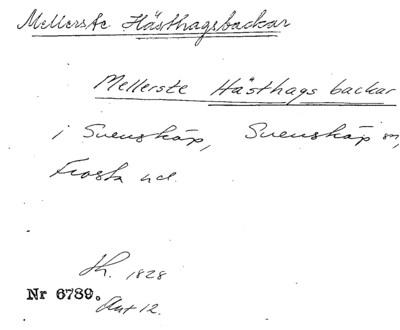 Mellerste Hästhagsbackar
Mellerste Hästhags backar
i Svenskåp, Svenskåp sn,
Frosta hd.
Sk. 1828
Nr 6789.
Akt 12.